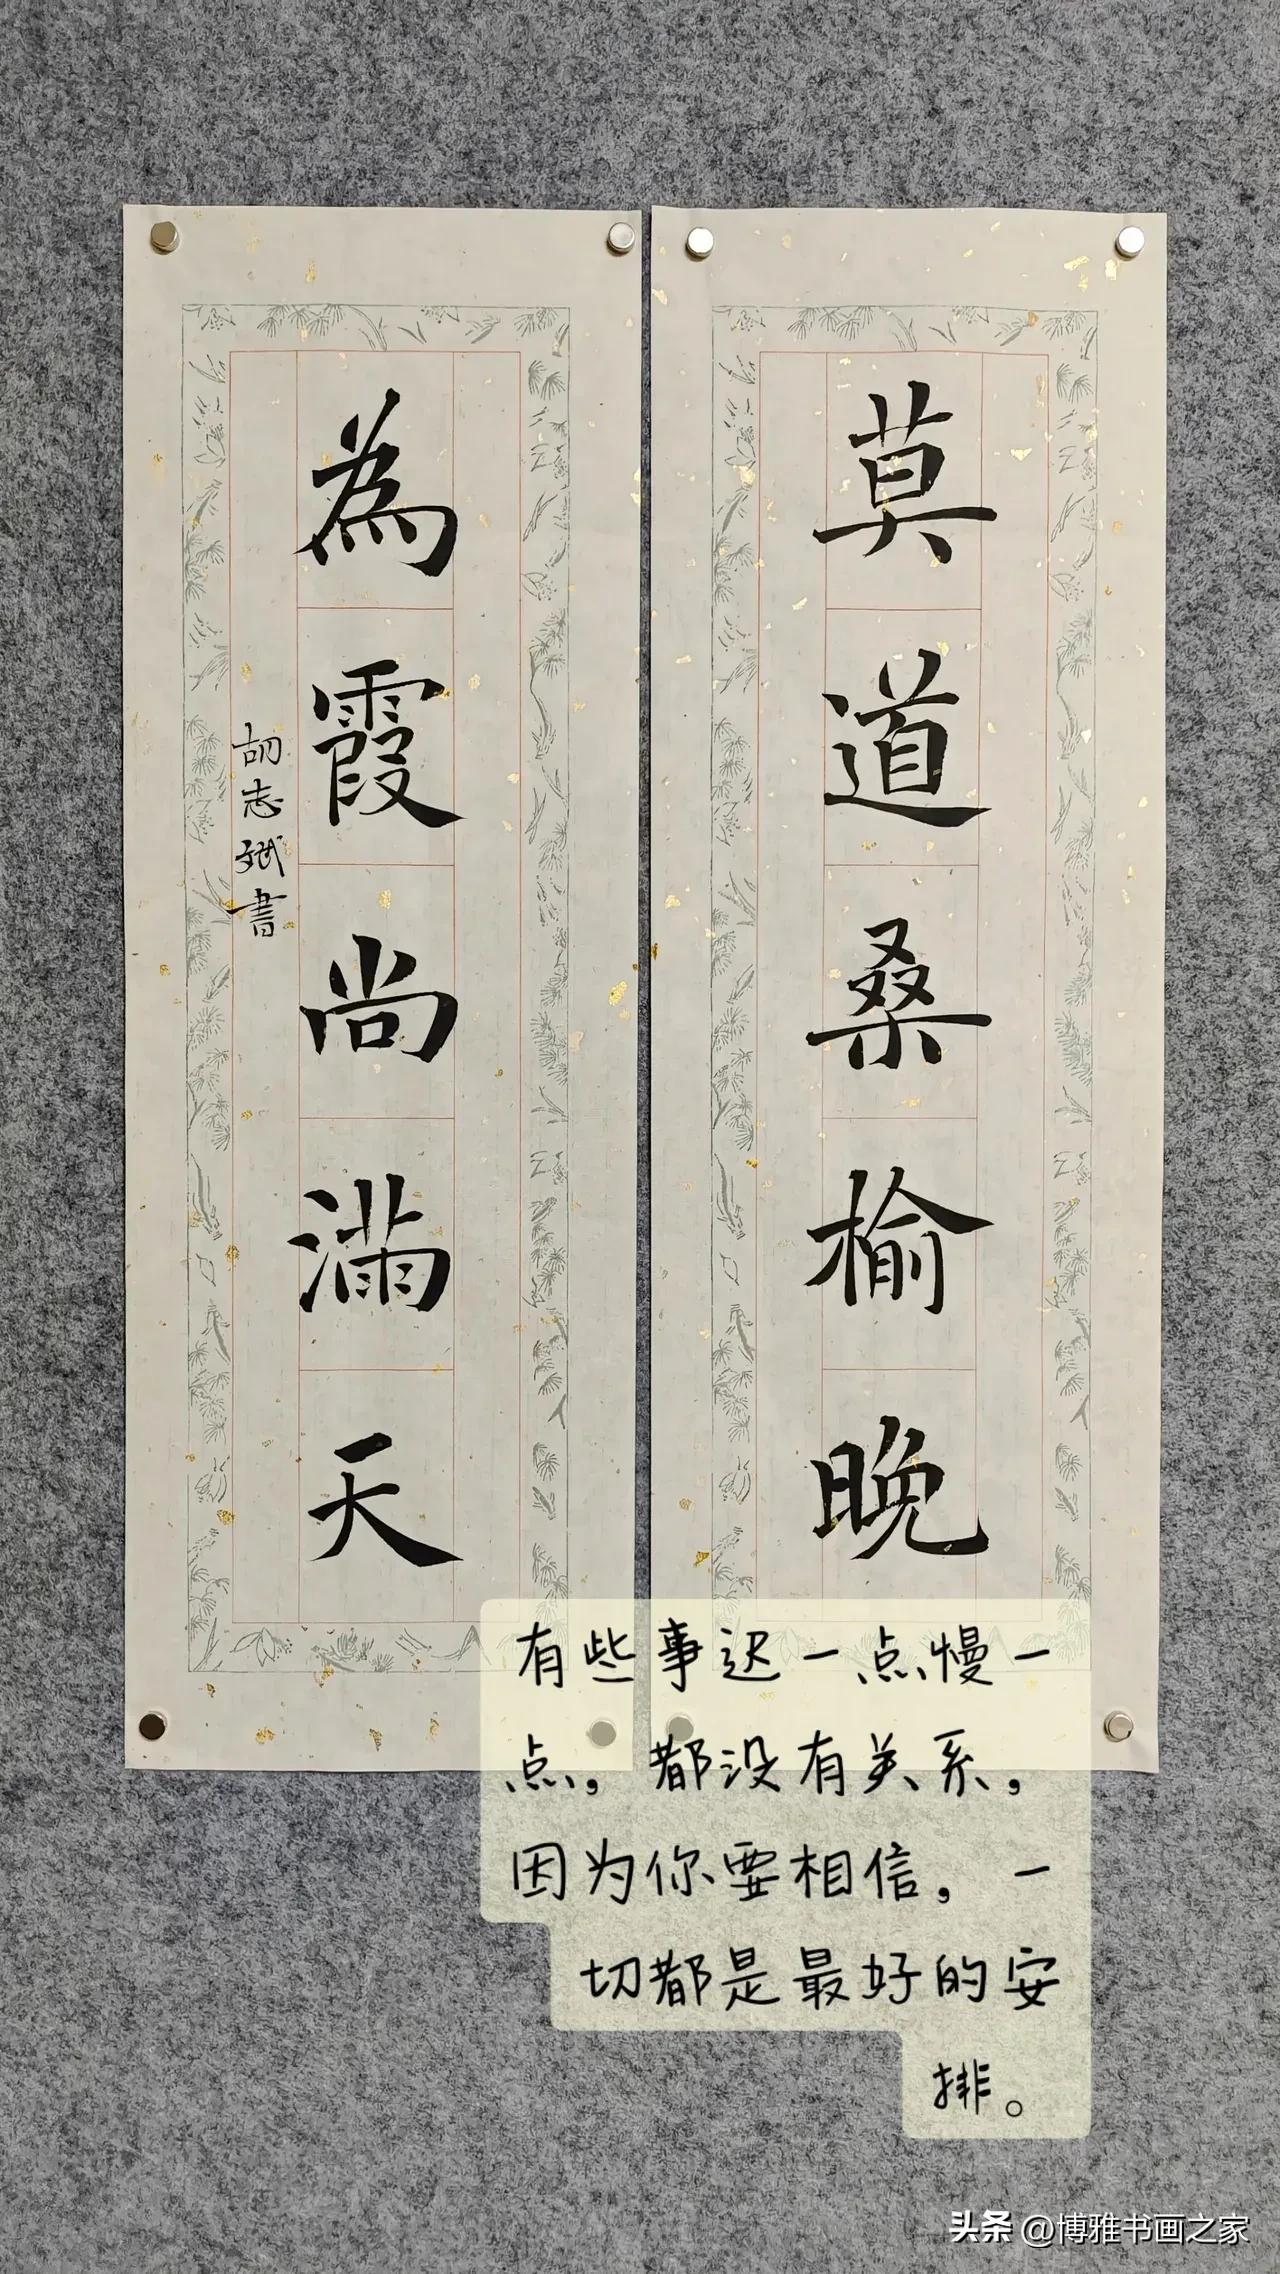 莫道桑榆晚
為霞尚满天
胡志斌書
有些事迟一点慢一
点，都没有关系，
因为你要相信，一
切都是最好的安
排。
头条 @博雅书画之家